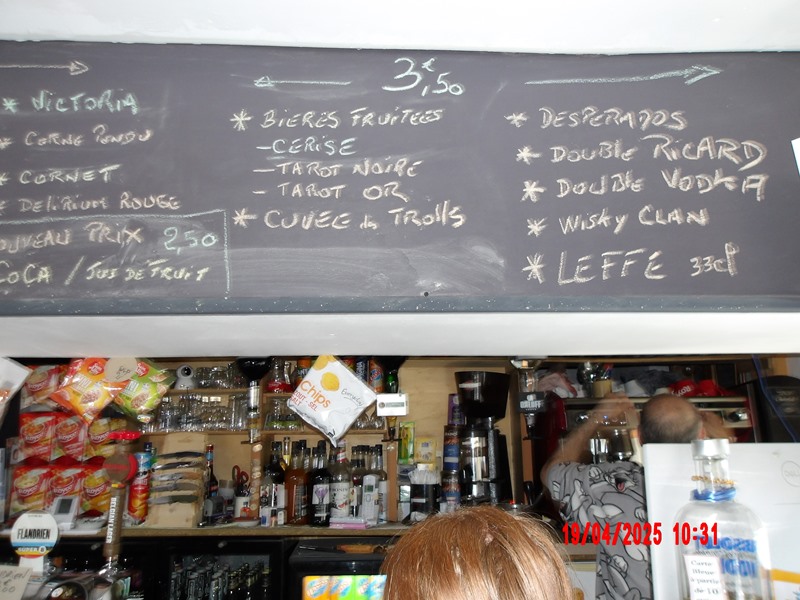 3€,50
* VICTORIA
* CORNE PENDU
* CORNET
* DELIRIUM ROUGE
OUVEAU PRIX 2,50
COCA / JUS DE FRUIT
* BIERES FRUITEES
- CERISE
- TAROT NOIRE
- TAROT OR
* CUVEE des TROLLS
* DESPERADOS
* DOUBLE RICARD
* DOUBLE VODKA
* WISKY CLAN
* LEFFE 33cl
Chips
FLANDRIEN
19/04/2025 10:31
Carte
Bleue
à partir
de 10